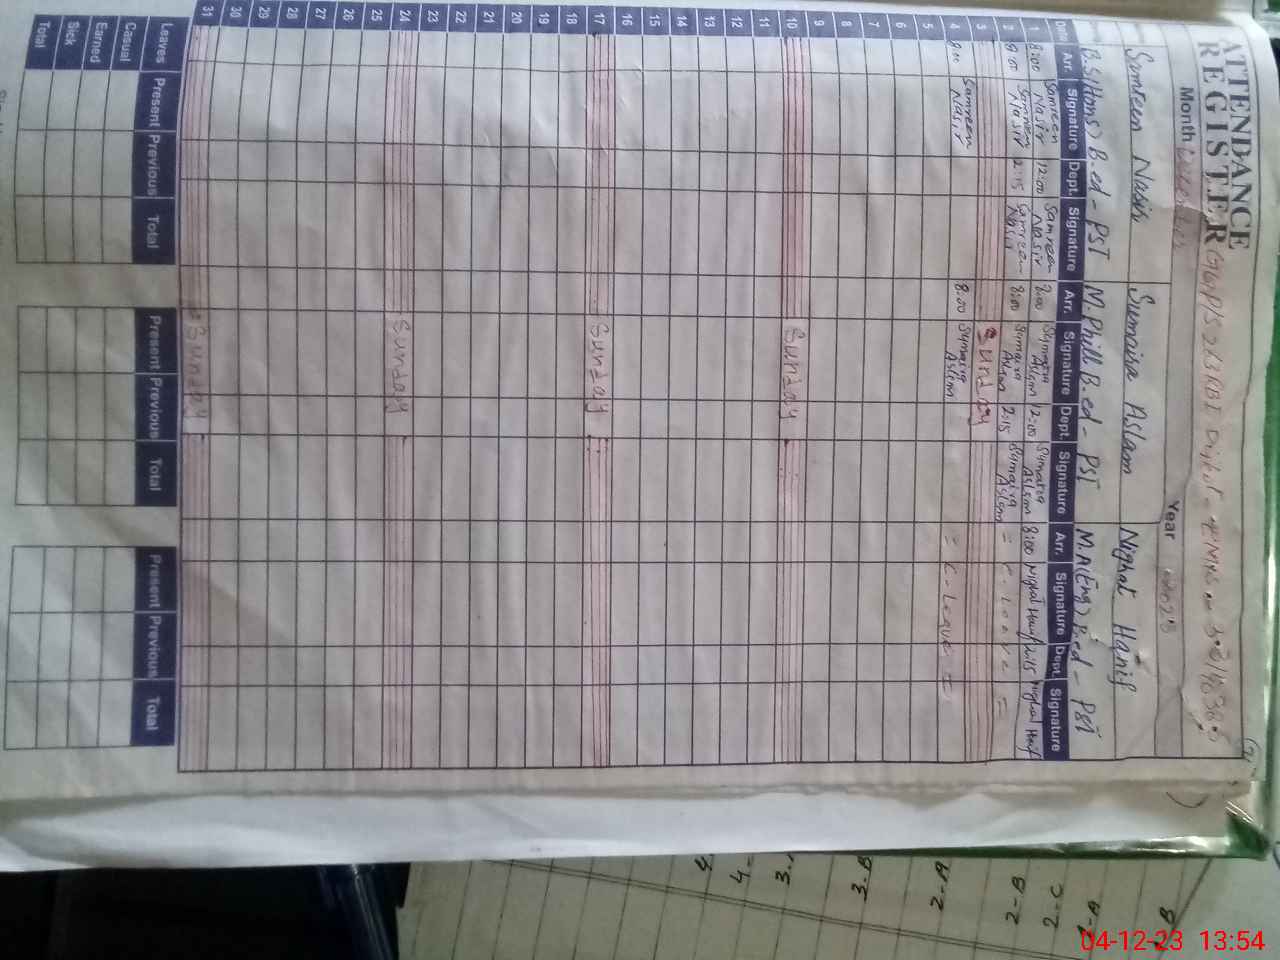 ATTENDANCE
REGISTER
Month
Year
Samreen Nasir Sumaira Aslam Nighat Hanif
B.S(Hons) B.ed - PST M.Phill B.ed - PST M.A(Eng) B.ed - PST
Date Arr. Signature Dept. Signature Arr. Signature Dept. Signature Arr. Signature Dept. Signature
1 8:00 Samreen Nasir 12:00 Samreen Nasir 8:00 Sumaira Aslam 12:00 Sumaira Aslam 8:00 Nighat Hanif Nighat Hanif
2 8:00 Samreen Nasir 2:15 Samreen Nasir 8:00 Sumaira Aslam 2:15 Sumaira Aslam = C-Leave =
3 Sunday
4 8:00 Samreen Nasir 8:00 Sumaira Aslam = C-Leave =
5
6
7
8
9
10 Sunday
11
12
13
14
15
16
17 Sunday
18
19
20
21
22
23
24 Sunday
25
26
27
28
29
30
31 Sunday
Leaves Present Previous Total Present Previous Total Present Previous Total
Casual
Earned
Sick
Total
2-B
2-C
2-A
3-B
04-12-23 13:54